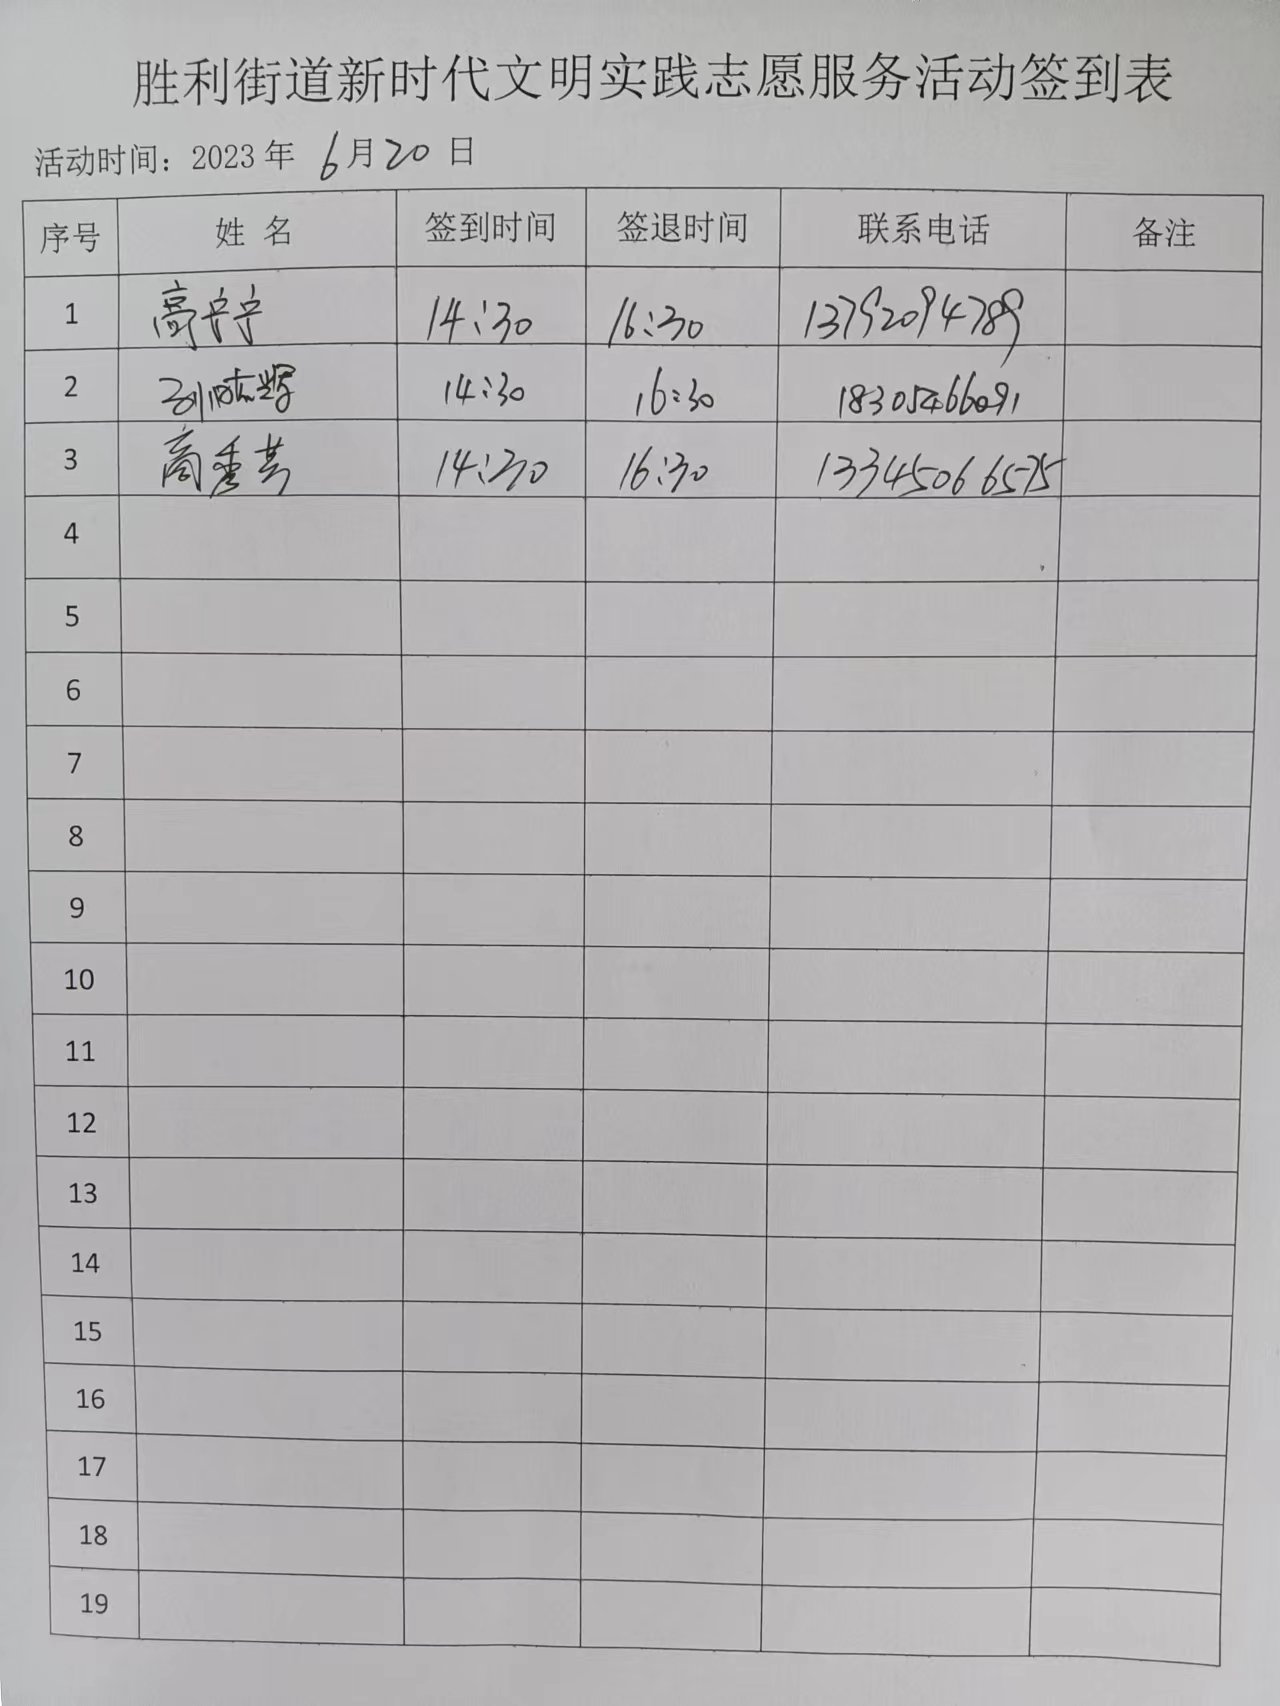 胜利街道新时代文明实践志愿服务活动签到表
活动时间：2023 年 6 月 20 日
序号 姓 名 签到时间 签退时间 联系电话 备注
1 高宁宁 14:30 16:30 13792094789
2 14:30 16:30 18305466091
3 14:30 16:30 13345066575
4
5
6
7
8
9
10
11
12
13
14
15
16
17
18
19